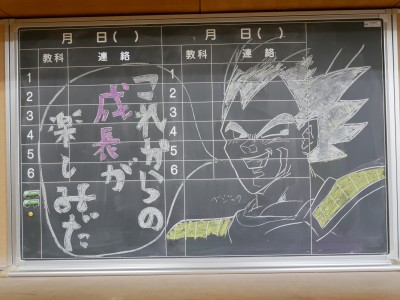 月 日( )
教科 連絡
1
2
3
4
5
6
これからの
成長が
楽しみだ
月 日( )
教科 連絡
1
2
3
4
5
6